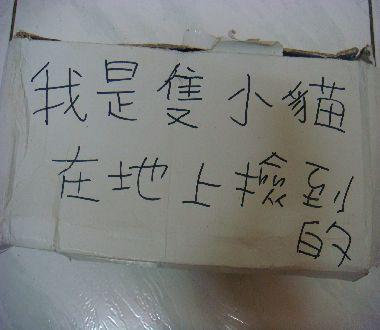 我是隻小貓
在地上撿到
的